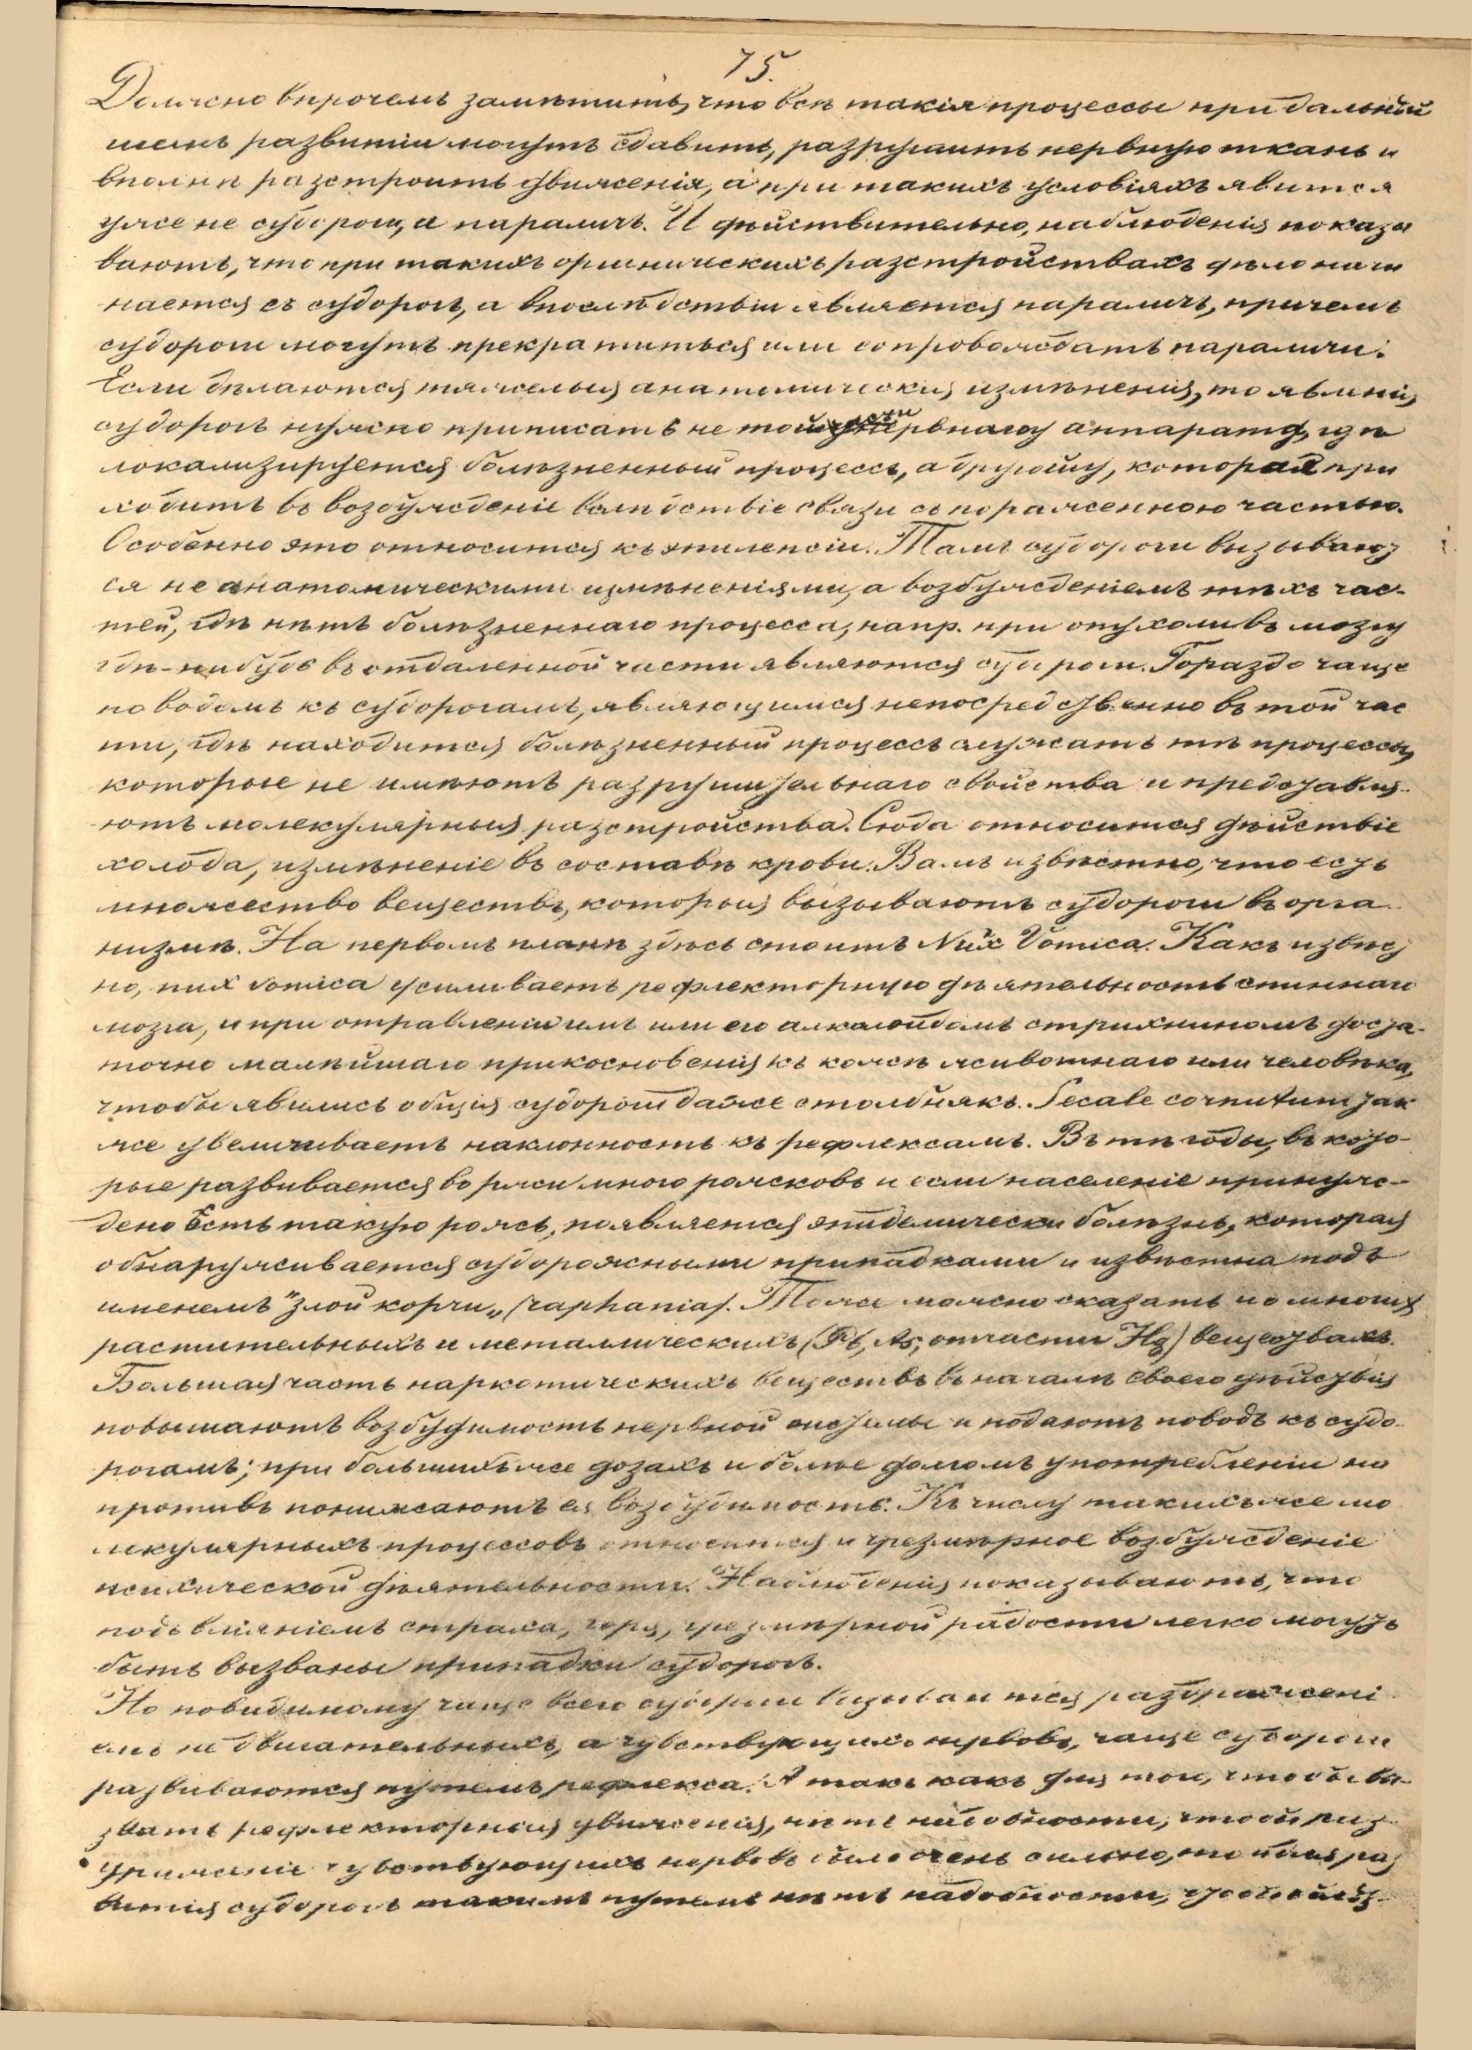 75.
Должно впрочемъ замѣтить, что всѣ такія процессы при дальнѣй
шемъ развитіи могутъ сдавить, разрушить нервную ткань и
вполнѣ разстроить движенія, а при такихъ условіяхъ явится
уже не судороги, а параличъ. И дѣйствительно, наблюденія показы
ваютъ, что при такихъ органическихъ разстройствахъ дѣло начи
нается съ судорогъ, а впослѣдствіи является параличъ, причемъ
судороги могутъ прекратиться или сопровождать параличи.
Если дѣлаются тяжелыя анатомическія измѣненія, то явленія
судорогъ нужно приписать не той части нервнаго аппарата, гдѣ
локализируется болѣзненный процессъ, а другому, которая при
ходитъ въ возбужденіе вслѣдствіе связи съ пораженною частью.
Особенно это относится къ эпилепсіи. Тамъ судороги вызывают
ся не анатомическими измѣненіями, а возбужденіемъ тѣхъ час-
тей, гдѣ нѣтъ болѣзненнаго процесса, напр. при опухоли въ мозгу
гдѣ-нибудь въ отдаленной части являются судороги. Гораздо чаще
поводомъ къ судорогамъ, являющимся непосредственно въ той час
ти, гдѣ находится болѣзненный процессъ служатъ тѣ процессы,
которые не имѣютъ разрушительнаго свойства и представля-
ютъ молекулярныя разстройства. Сюда относится дѣйствіе
холода, измѣненіе въ составѣ крови. Вамъ извѣстно, что есть
множество веществъ, которыя вызываютъ судороги въ орга-
низмѣ. На первомъ планѣ здѣсь стоитъ Nux Vomica. Какъ извѣст
но, nux vomica усиливаетъ рефлекторную дѣятельность спиннаго
мозга, и при отравленіи имъ или его алкалоидомъ стрихниномъ доста-
точно малѣйшаго прикосновенія къ кожѣ животнаго или человѣка,
чтобы явились общія судороги даже столбнякъ. Secale cornutum так
же увеличиваетъ наклонность къ рефлексамъ. Въ тѣ годы, въ кото-
рые развивается во ржи много рожковъ и если населеніе принуж-
дено ѣсть такую рожь, появляется эпидемически болѣзнь, которая
обнаруживается судорожными припадками и извѣстна подъ
именемъ "злой корчи" (raphania). Тоже можно сказать и о многих
растительныхъ и металлическихъ (Pb, As, отчасти Hg) веществахъ.
Большая часть наркотическихъ веществъ въ началѣ своего дѣйствія
повышаютъ возбудимость нервной системы и подаютъ поводъ къ судо-
рогамъ; при большихъ же дозахъ и болѣе долгомъ употребленіи на
противъ понижаютъ ея возбудимость. Къ числу такихъ же мо
лекулярныхъ процессовъ относится и чрезмѣрное возбужденіе
психической дѣятельности. Наблюденія показываютъ, что
подъ вліяніемъ страха, горя, чрезмѣрной радости легко могутъ
быть вызваны припадки судорогъ.
Но повидимому чаще всего судороги вызываются раздраженi
емъ не двигательныхъ, а чувствующихъ нервовъ, чаще судороги
развиваются путемъ рефлекса. А такъ какъ для того, чтобы вы-
звать рефлекторныя движенія, нѣтъ надобности, чтобы раз-
драженіе чувствующихъ нервовъ было очень сильно, то и для раз
витія судорогъ такимъ путемъ нѣтъ надобности,